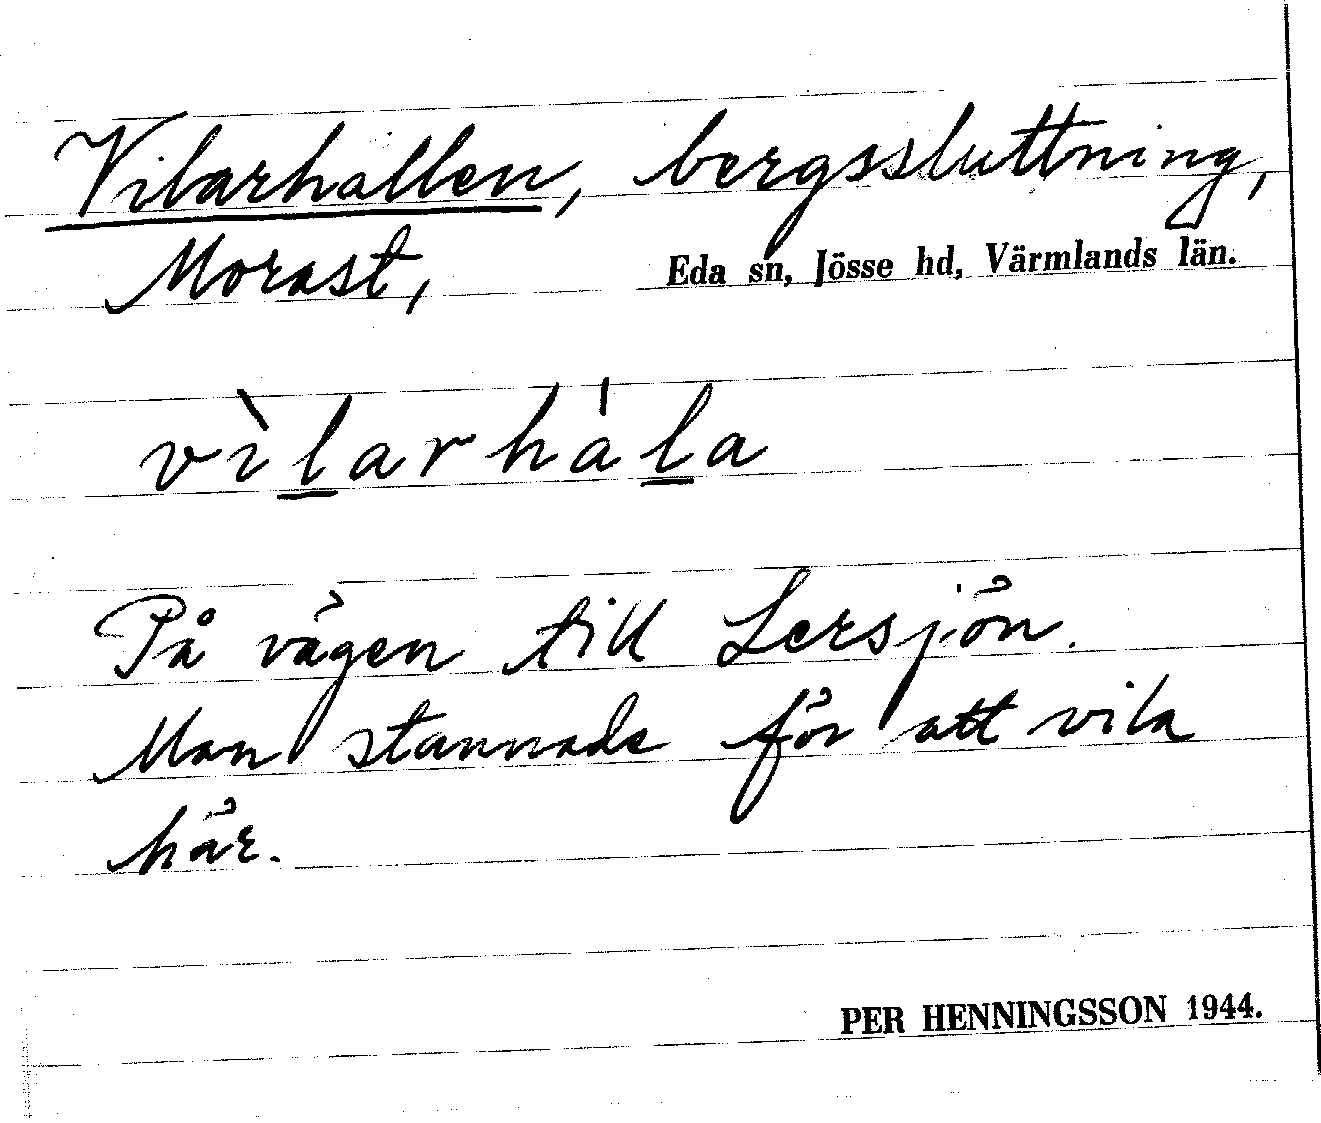 Vilarhallen, bergssluttning,
Morast, Eda sn, Jösse hd, Värmlands län.
vìlarhála
På vägen till Lersjön.
Man stannade för att vila
här.
PER HENNINGSSON 1944.